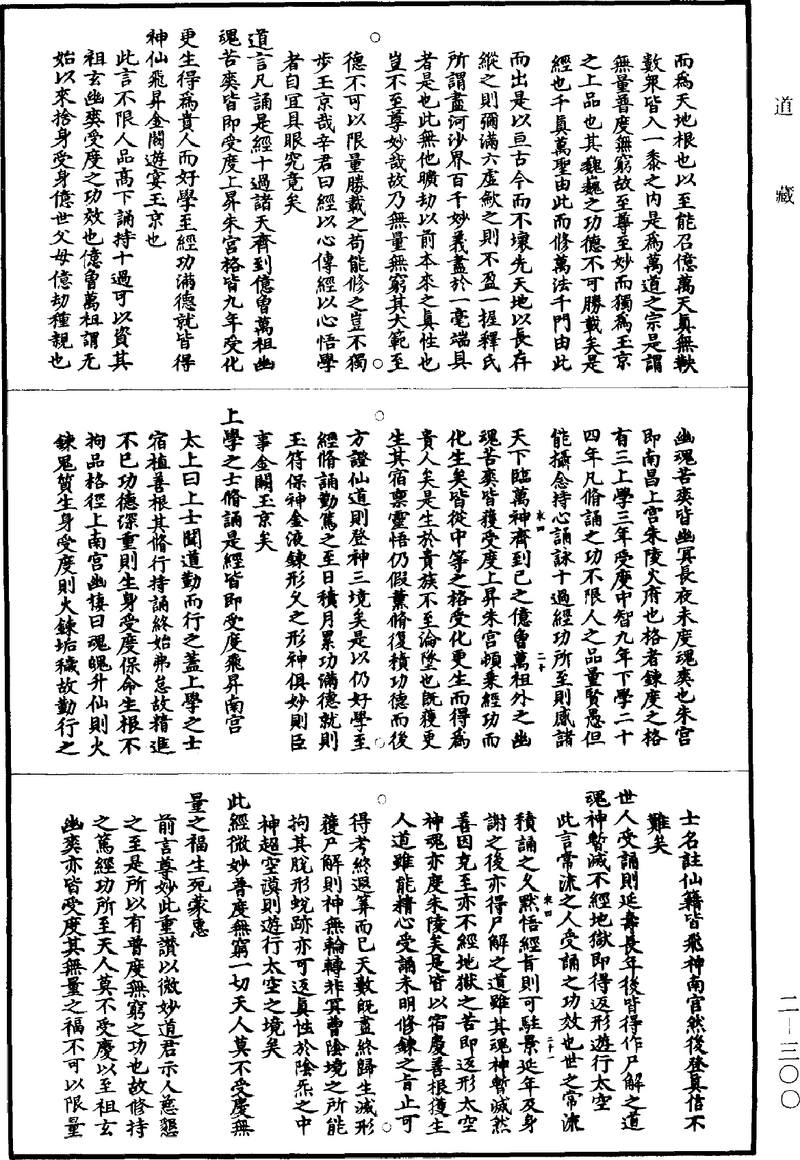 道藏
而為天地根也以至能召億萬天真無鞅
數衆皆入一黍之內是為萬道之宗是謂
無量普度無窮故至尊至妙而獨為玉京
之上品也其巍巍之功德不可勝載矣是
經也千真萬聖由此而修萬法千門由此
而出是以亘古今而不壞先天地以長存
縱之則彌滿六虛歛之則不盈一握釋氏
所謂盡河沙界百千妙義盡於一毫端具
者是也此無他曠劫以前本來之真性也
豈不至尊妙哉故乃無量無窮其大範至
德不可以限量勝載之苟能修之豈不獨
步玉京哉辛君曰經以心傳經以心悟學
者自宜具眼究竟矣
道言凡誦是經十過諸天齊到億曾萬祖幽
魂苦爽皆即受度上昇朱宮格皆九年受化
更生得為貴人而好學至經功滿德就皆得
神仙飛昇金闕遊宴玉京也
此言不限人品高下誦持十過可以資其
祖玄幽爽受度之功效也億曾萬祖謂无
始以來捨身受身億世父母億劫種親也
幽魂苦爽皆幽冥長夜未度魂爽也朱宮
即南昌上宮朱陵火府也格者鍊度之格
有三上學三年受度中智九年下學二十
四年凡脩誦之功不限人之品量賢愚但
能攝念持心誦詠十過經功所至則感諸
天下臨萬神齊到已之億曾萬祖外之幽
魂苦爽皆獲受度上昇朱宮頓乘經功而
化生矣皆從中等之格受化更生而得為
貴人矣是生於貴族不至淪墜也既獲更
生其宿稟靈悟仍假薰脩復積功德而後
方證仙道則登神三境矣是以仍好學至
經脩誦勤篤之至日積月累功滿德就則
玉符保神金液鍊形久之形神俱妙則臣
事金闕玉京矣
上學之士脩誦是經皆即受度飛昇南宮
太上曰上士聞道勤而行之蓋上學之士
宿植善根其脩行持誦終始弗怠故精進
不已功德深重則生身受度保命生根不
拘品格徑上南宮幽棲曰魂魄升仙則火
鍊鬼質生身受度則火鍊垢穢故勤行之
士名註仙籍皆飛神南宮然後登真信不
難矣
世人受誦則延壽長年後皆得作尸解之道
魂神暫滅不經地獄即得返形遊行太空
此言常流之人受誦之功效也世之常流
積誦之久默悟經旨則可駐景延年及身
謝之後亦得尸解之道雖其魂神暫滅然
善因充至亦不經地獄之苦即返形太空
神魂亦度朱陵矣是皆以宿慶善根獲生
人道雖能精心受誦未明修鍊之旨止可
得考終遐筭而已天數既盡終歸生滅形
獲尸解則神無輪轉非冥曹陰境之所能
拘其脫形蛻跡亦可返真性於陰炁之中
神超空漠則遊行太空之境矣
此經微妙普度無窮一切天人莫不受慶無
量之福生死蒙惠
前言尊妙此重讚以微妙道君示人慈懇
之至是所以有普度無窮之功也故修持
之篤經功所至天人莫不受慶以至祖玄
幽爽亦皆受度其無量之福不可以限量
二—三〇〇